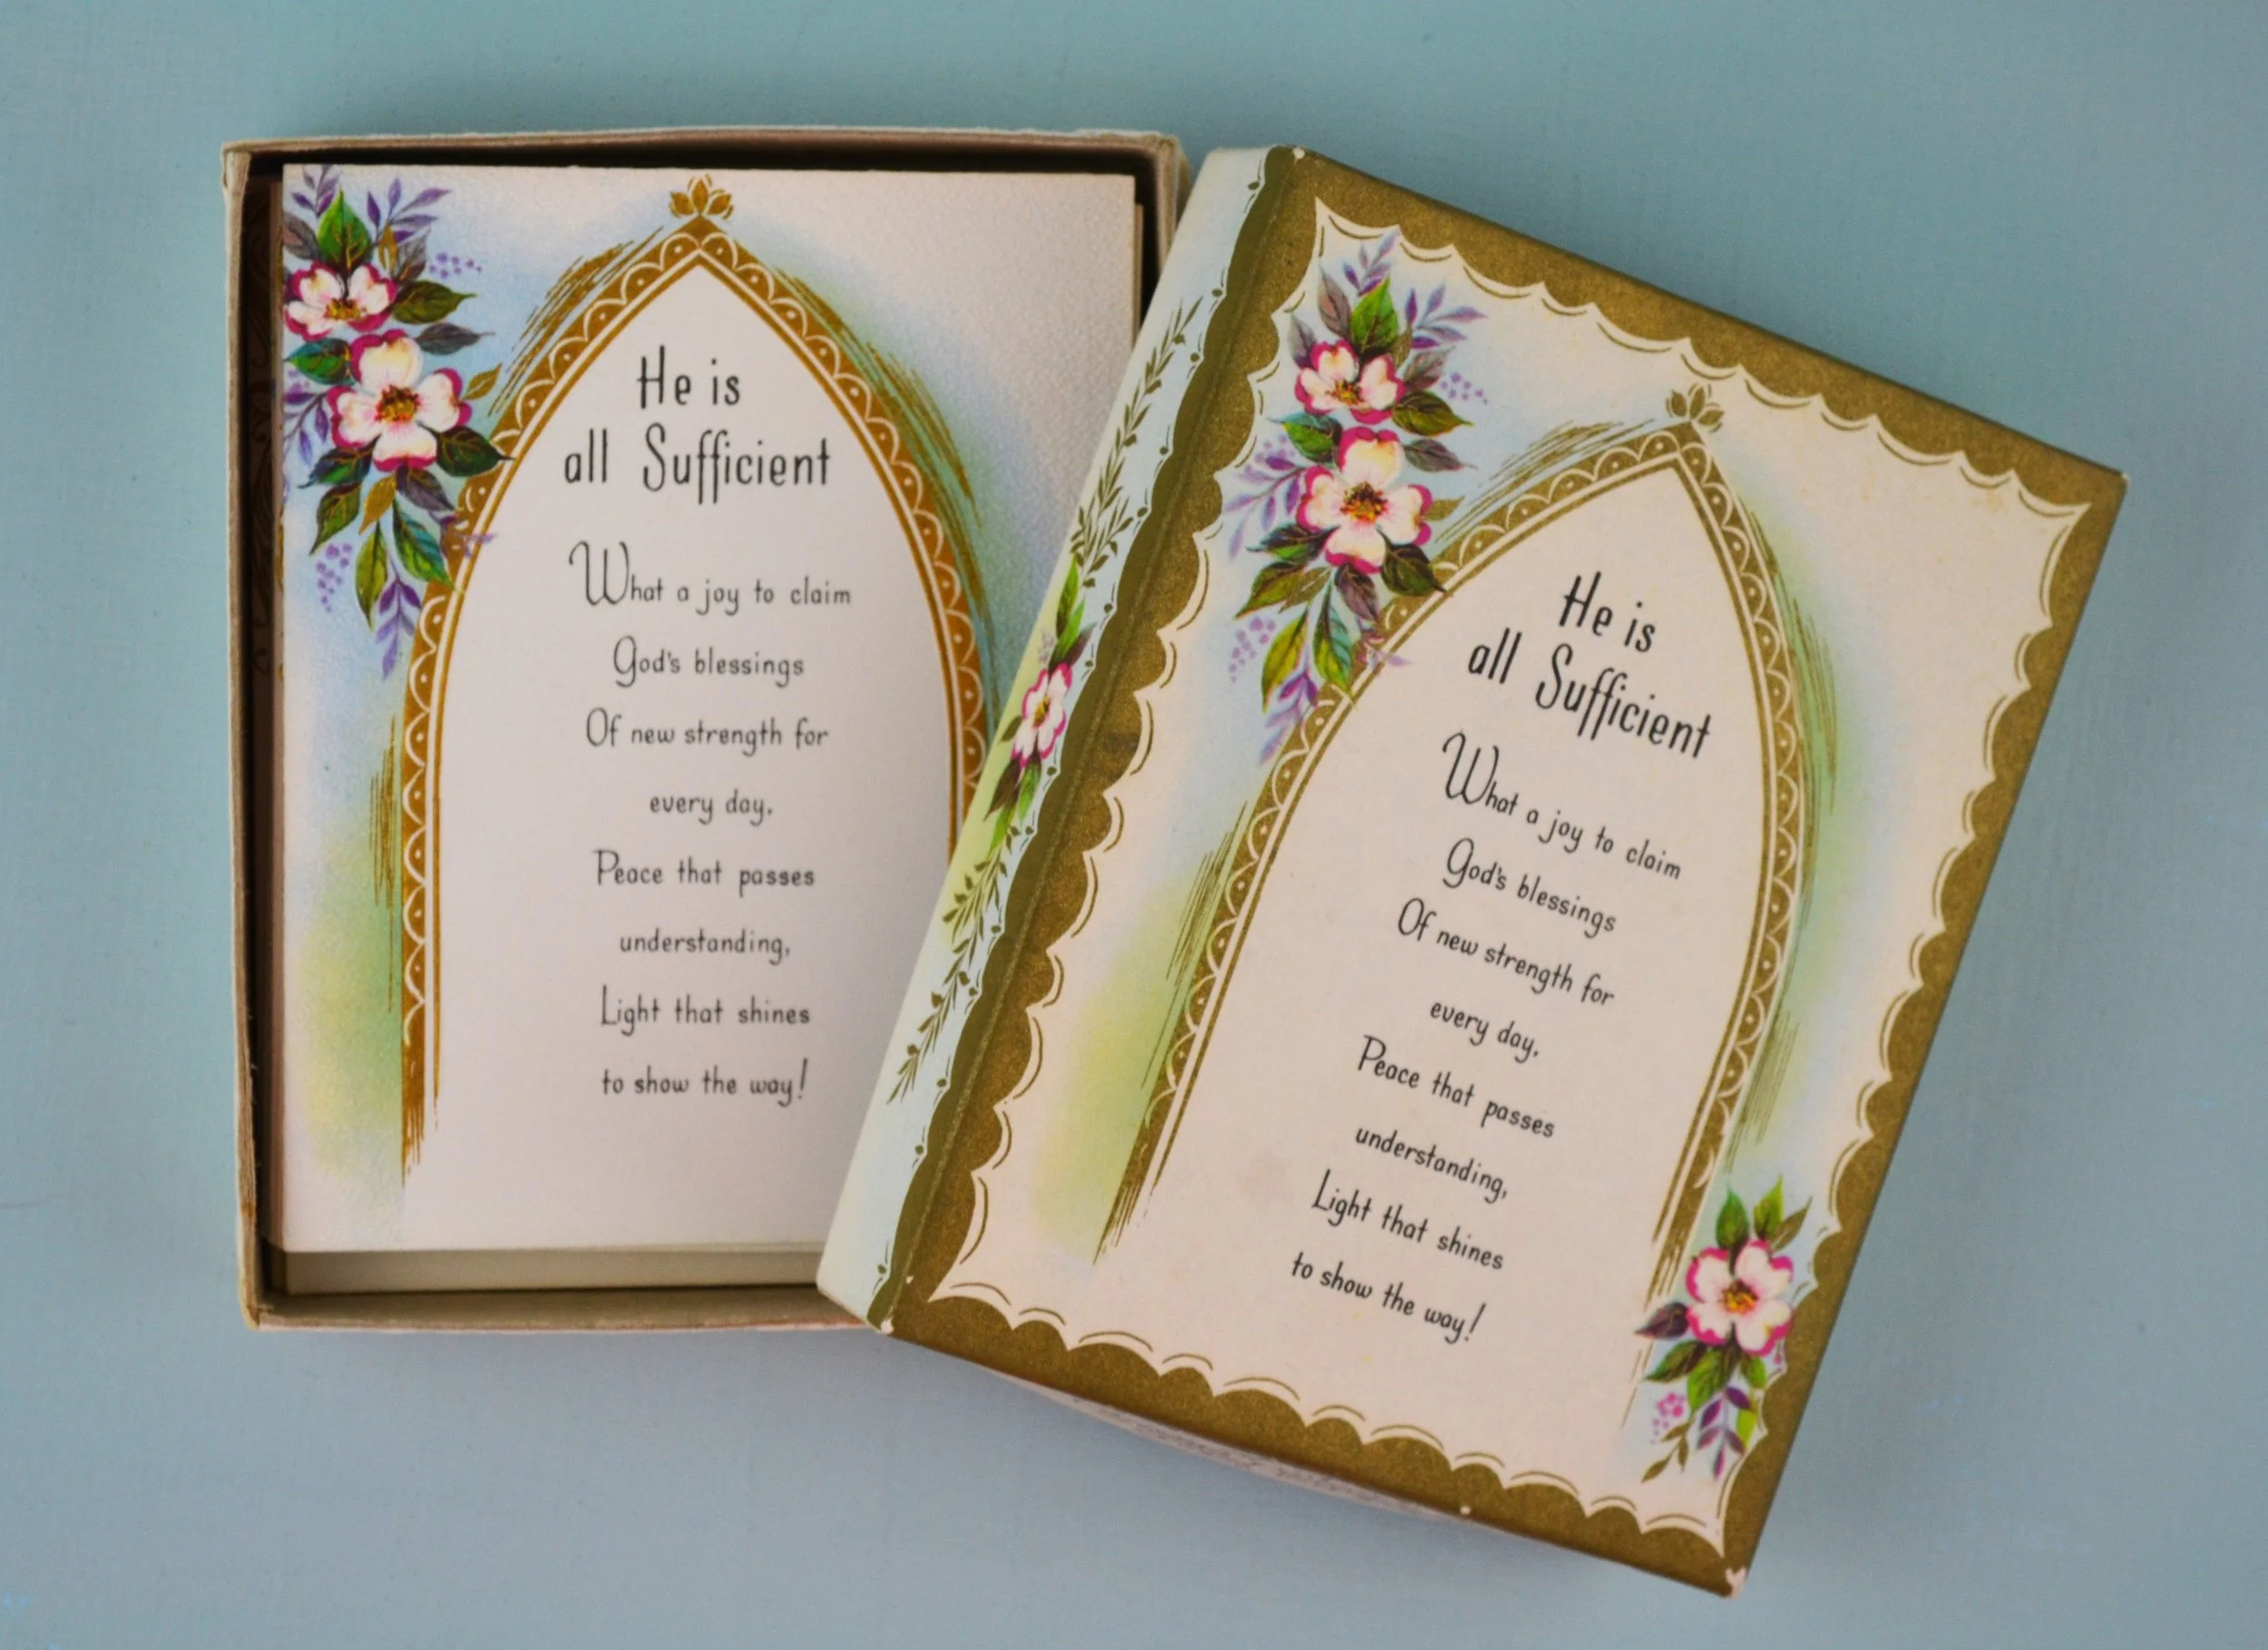 He is
all Sufficient
What a joy to claim
God's blessings
Of new strength for
every day,
Peace that passes
understanding,
Light that shines
to show the way!
He is
all Sufficient
What a joy to claim
God's blessings
Of new strength for
every day,
Peace that passes
understanding,
Light that shines
to show the way!